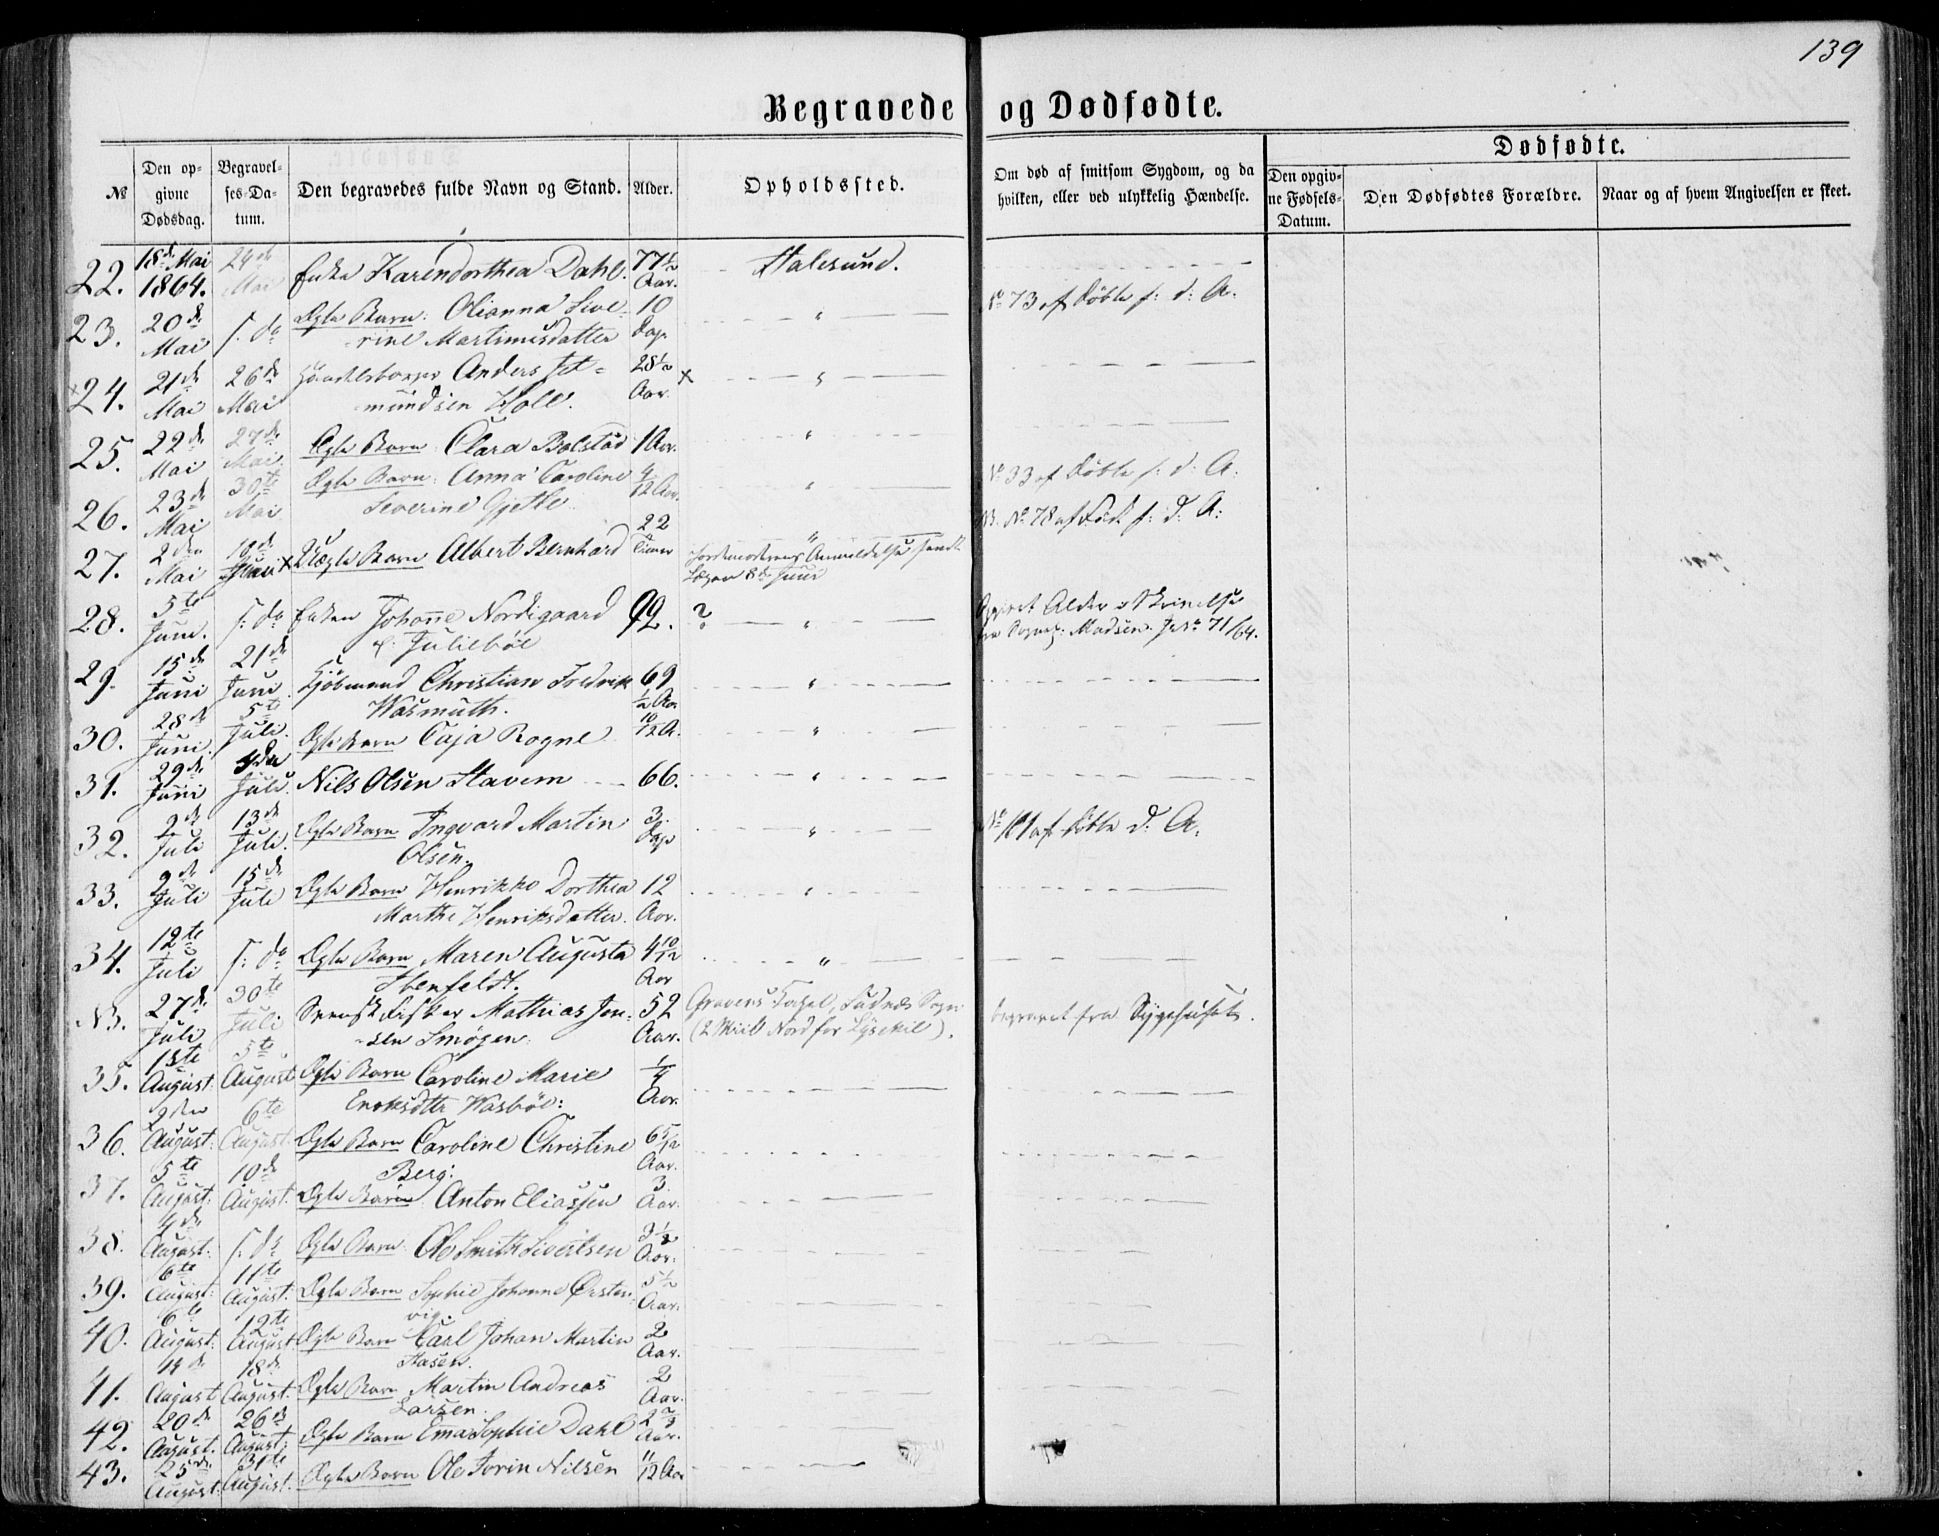 139
Begravede og Dødfødte.
Dødfødte.
№
Den op-
givne
Dødsdag.
Begravel-
ses-Da-
tum.
Den begravedes fulde Navn og Stand.
Alder.
Opholdssted.
Om død af smitsom Sygdom, og da
hvilken, eller ved ulykkelig Hændelse.
Den opgiv-
ne Fødsels-
Datum.
Den Dødfødtes Forældre.
Naar og af hvem Angivelsen er skeet.
22. 18de Mai 1864. 24de Mai Enke Karendorthea Dahl. 77½ Aar. Aalesund.
23. 20de Mai s: do Ægte Barn: Olianna Sive- 10 Dage " No 73 af Døbte f: d: A:
rine Martinusdatter
24. 21de Mai 26de Mai Anders Jet= 28½ Aar. × "
mundsen Holl.
25. 22de Mai 27de Mai Ægte Barn: Clara Bolstad 1 Aar. "
26. 23de Mai 30te Mai Ægte Barn: Anna Caroline 4/12 Aar. " No 33 af Døbte f: d: A:
Severine Gjette
27. 2den Mai 10de × Uægte Barn Albert Bernhard 22 Timer " No 78 af Fød. f: d: A:
Jordemoderens Anmeldelse sendt
Lægen 8de Juni
28. 5te Juni. s: do Enken Johanne Nordigaard 92. ? " Alder
p: Juliebøe Madsen 71/64.
29. 15de Juni 21de Juni Kjøbmand Christian Fredrik 69 ½ Aar "
Wasmuth.
30. 28de Juni. 5te Juli. Ægte Barn Caja Rogne 10/12 A. "
31. 29de Juni Juli. Nils Olsen Stavem 66. "
32. 2de Juli 13de Juli. Ægte Barn Ingvard Martin 3 Dage " No 101 af Døbte d: A:
Olsen.
33. 9de Juli 15de Juli Ægte Barn Henrikke Dorthea 12 Aar. "
Marthe Henriksdatter.
34. 12te Juli s: do Ægte Barn Maren Augusta 4 10/12 Aar "
Ibenfeldt.
NB. 27de Juli 30te Juli Svensk Fisker Mathias Jon- 52 Aar. Gravens Sogn begravet fra Sygehuset.
sen Smögen. (2 Miil Nord for Lysekil).
35. August. 5te August Ægte Barn Caroline Marie ¼ Aar.
Enoksdtte Wasbøe:
36. 2den August. 6te August. Ægte Barn Caroline Christine 6 5/12 Aar.
Berg.
37. 5te August. 10de August. Ægte Barn Anton Eliassen 3 Aar.
38. 4de August. s: do Ægte Barn Ole Smith Sivertsen 3½ Aar.
39. 6te August. 11te August. Ægte Barn Sophie Johanne Ørsten- 5½ Aar.
vig.
40. 6te August. 12te August. Ægte Barn Carl Johan Martin 2 Aar.
Hasen.
41. 14de August 18de August. Ægte Barn Martin Andreas 2 Aar.
Larsen.
42. 20de August. 26de August. Ægte Barn Ema Sophie Dahl 2 Aar.
43. 25de August. 31te August. Ægte Barn Ole Jorin Nilsen 11/12 Aar